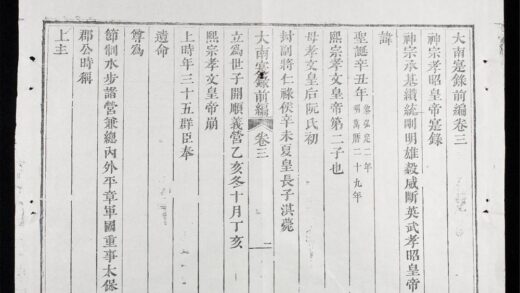 大南寔錄前編卷三
神宗孝昭皇帝寔錄
神宗承基纘統剛明雄毅威斷英武孝昭皇帝
諱
聖誕辛丑年 黎弘定二年 明萬曆二十九年
熙宗孝文皇帝第二子也
母孝文皇后阮氏初
封副將仁祿侯辛未夏皇長子淇薨
大南寔錄前編 卷三 二
立為世子開順義營乙亥冬十月丁亥
熙宗孝文皇帝崩
上時年三十五群臣奉
遺命
尊為
節制水步諸營兼總內外平章軍國重事太保
郡公時稱
上主